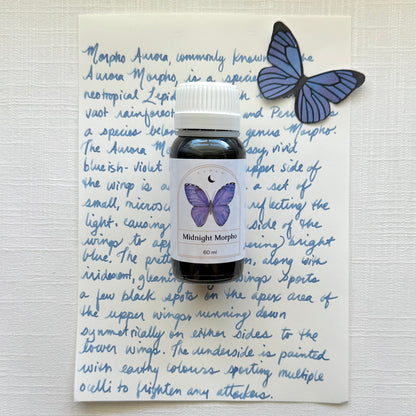 Morpho Aurora, commonly known the
Aurora Morpho, is a species
neotropical Lepid
vast rainfores and Peru
a species belo genus Morpho.
The Aurora M ssy, vivid
blueish-violet upper side of
the wings is a a set of
small, microsc reflecting the
light, causing side of the
wings to app ring bright
blue. The prett n, along with
iridescent, gleaming wings sports
a few black spots on the apex area of
the upper wings, running down
symmetrically on either sides to the
lower wings. The underside is painted
with earthy colours sporting multiple
ocelli to frighten any attackers.
Midnight Morpho
60 ml